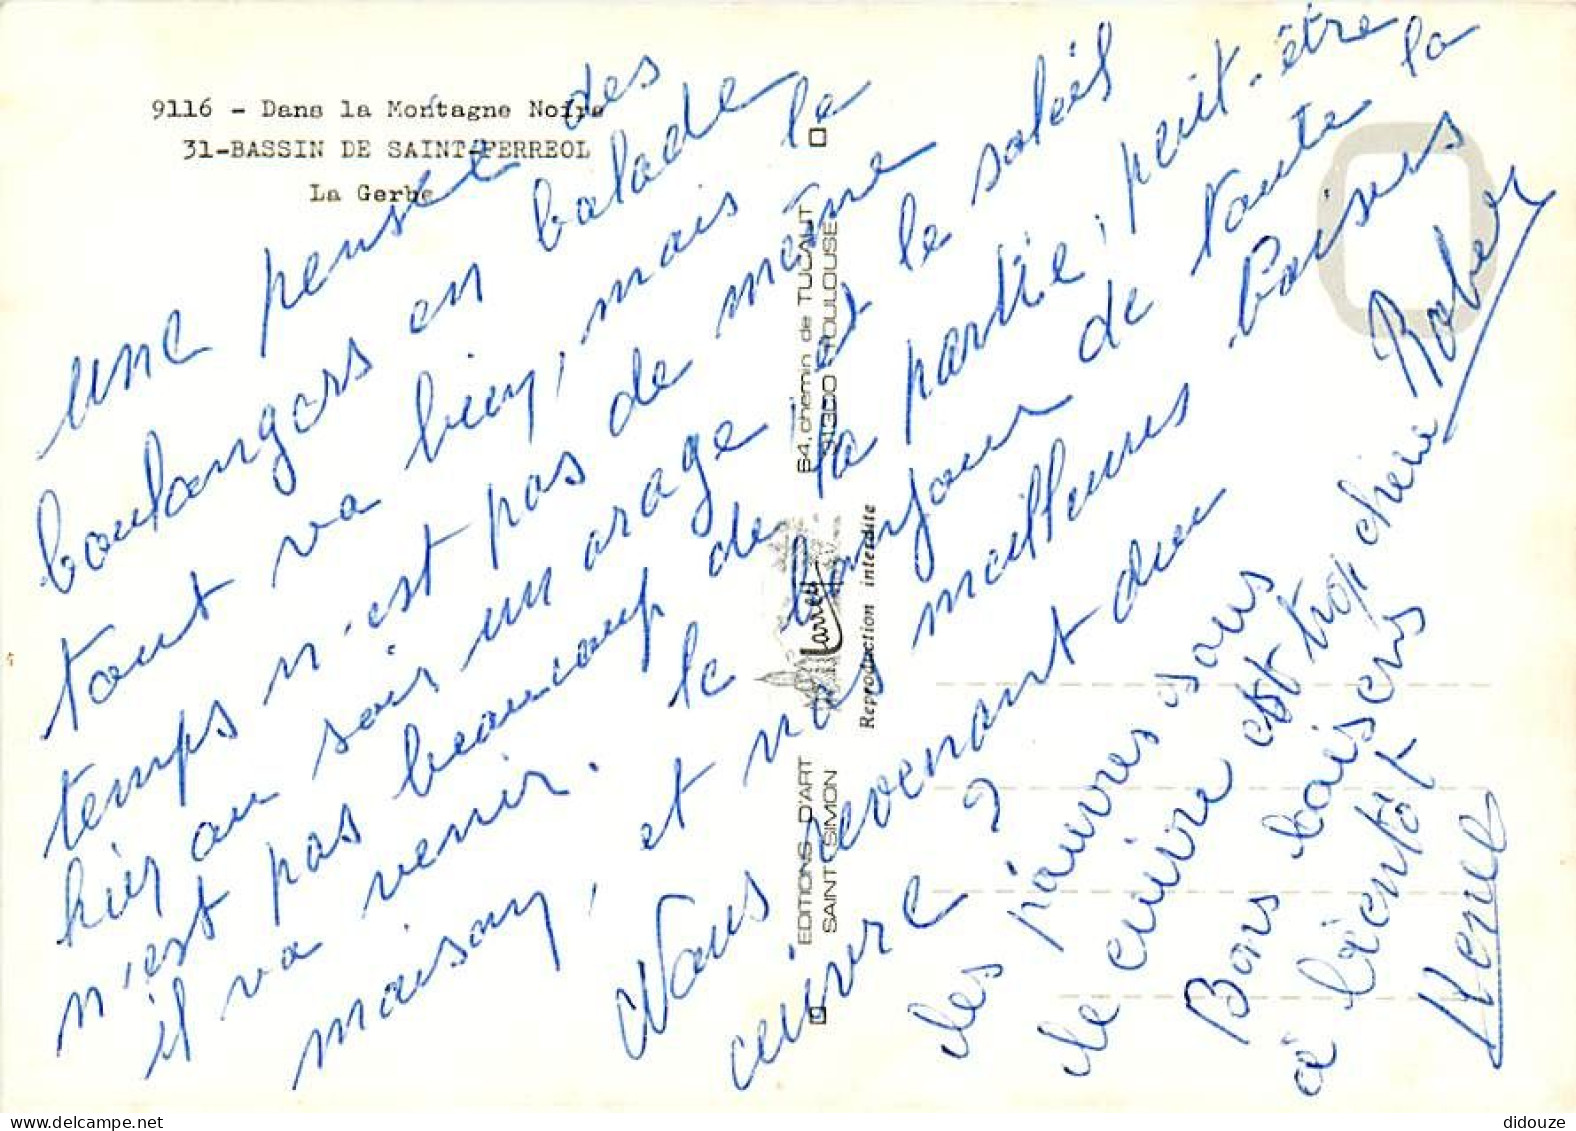 9116 - Dans la Montagne Noire
31-BASSIN DE SAINT-FERREOL
La Gerbe
une pensée des
boulangers en balade
tout va bien, mais le
temps n'est pas de même
hier au soir un orage, et le soleil
n'est pas beaucoup de la partie, peut-être
il va venir. le bonjour de toute la
maison, et nos meilleurs baisers
Rober
Nous revenant du
cuivre ?
les pauvres sous
le cuivre est trop chère
Bons baisers
à bientôt
EDITIONS D'ART
SAINT SIMON
Larrey
64, chemin de TUCAUT
31300 TOULOUSE
Reproduction interdite
didouze